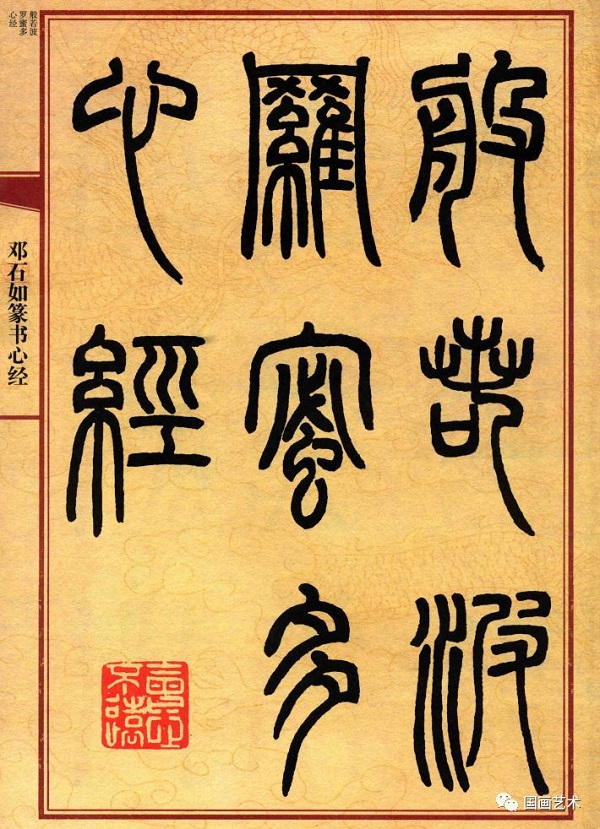 般若波
罗蜜多
心经
邓石如篆书心经
般若波
羅蜜多
心經
国画艺术